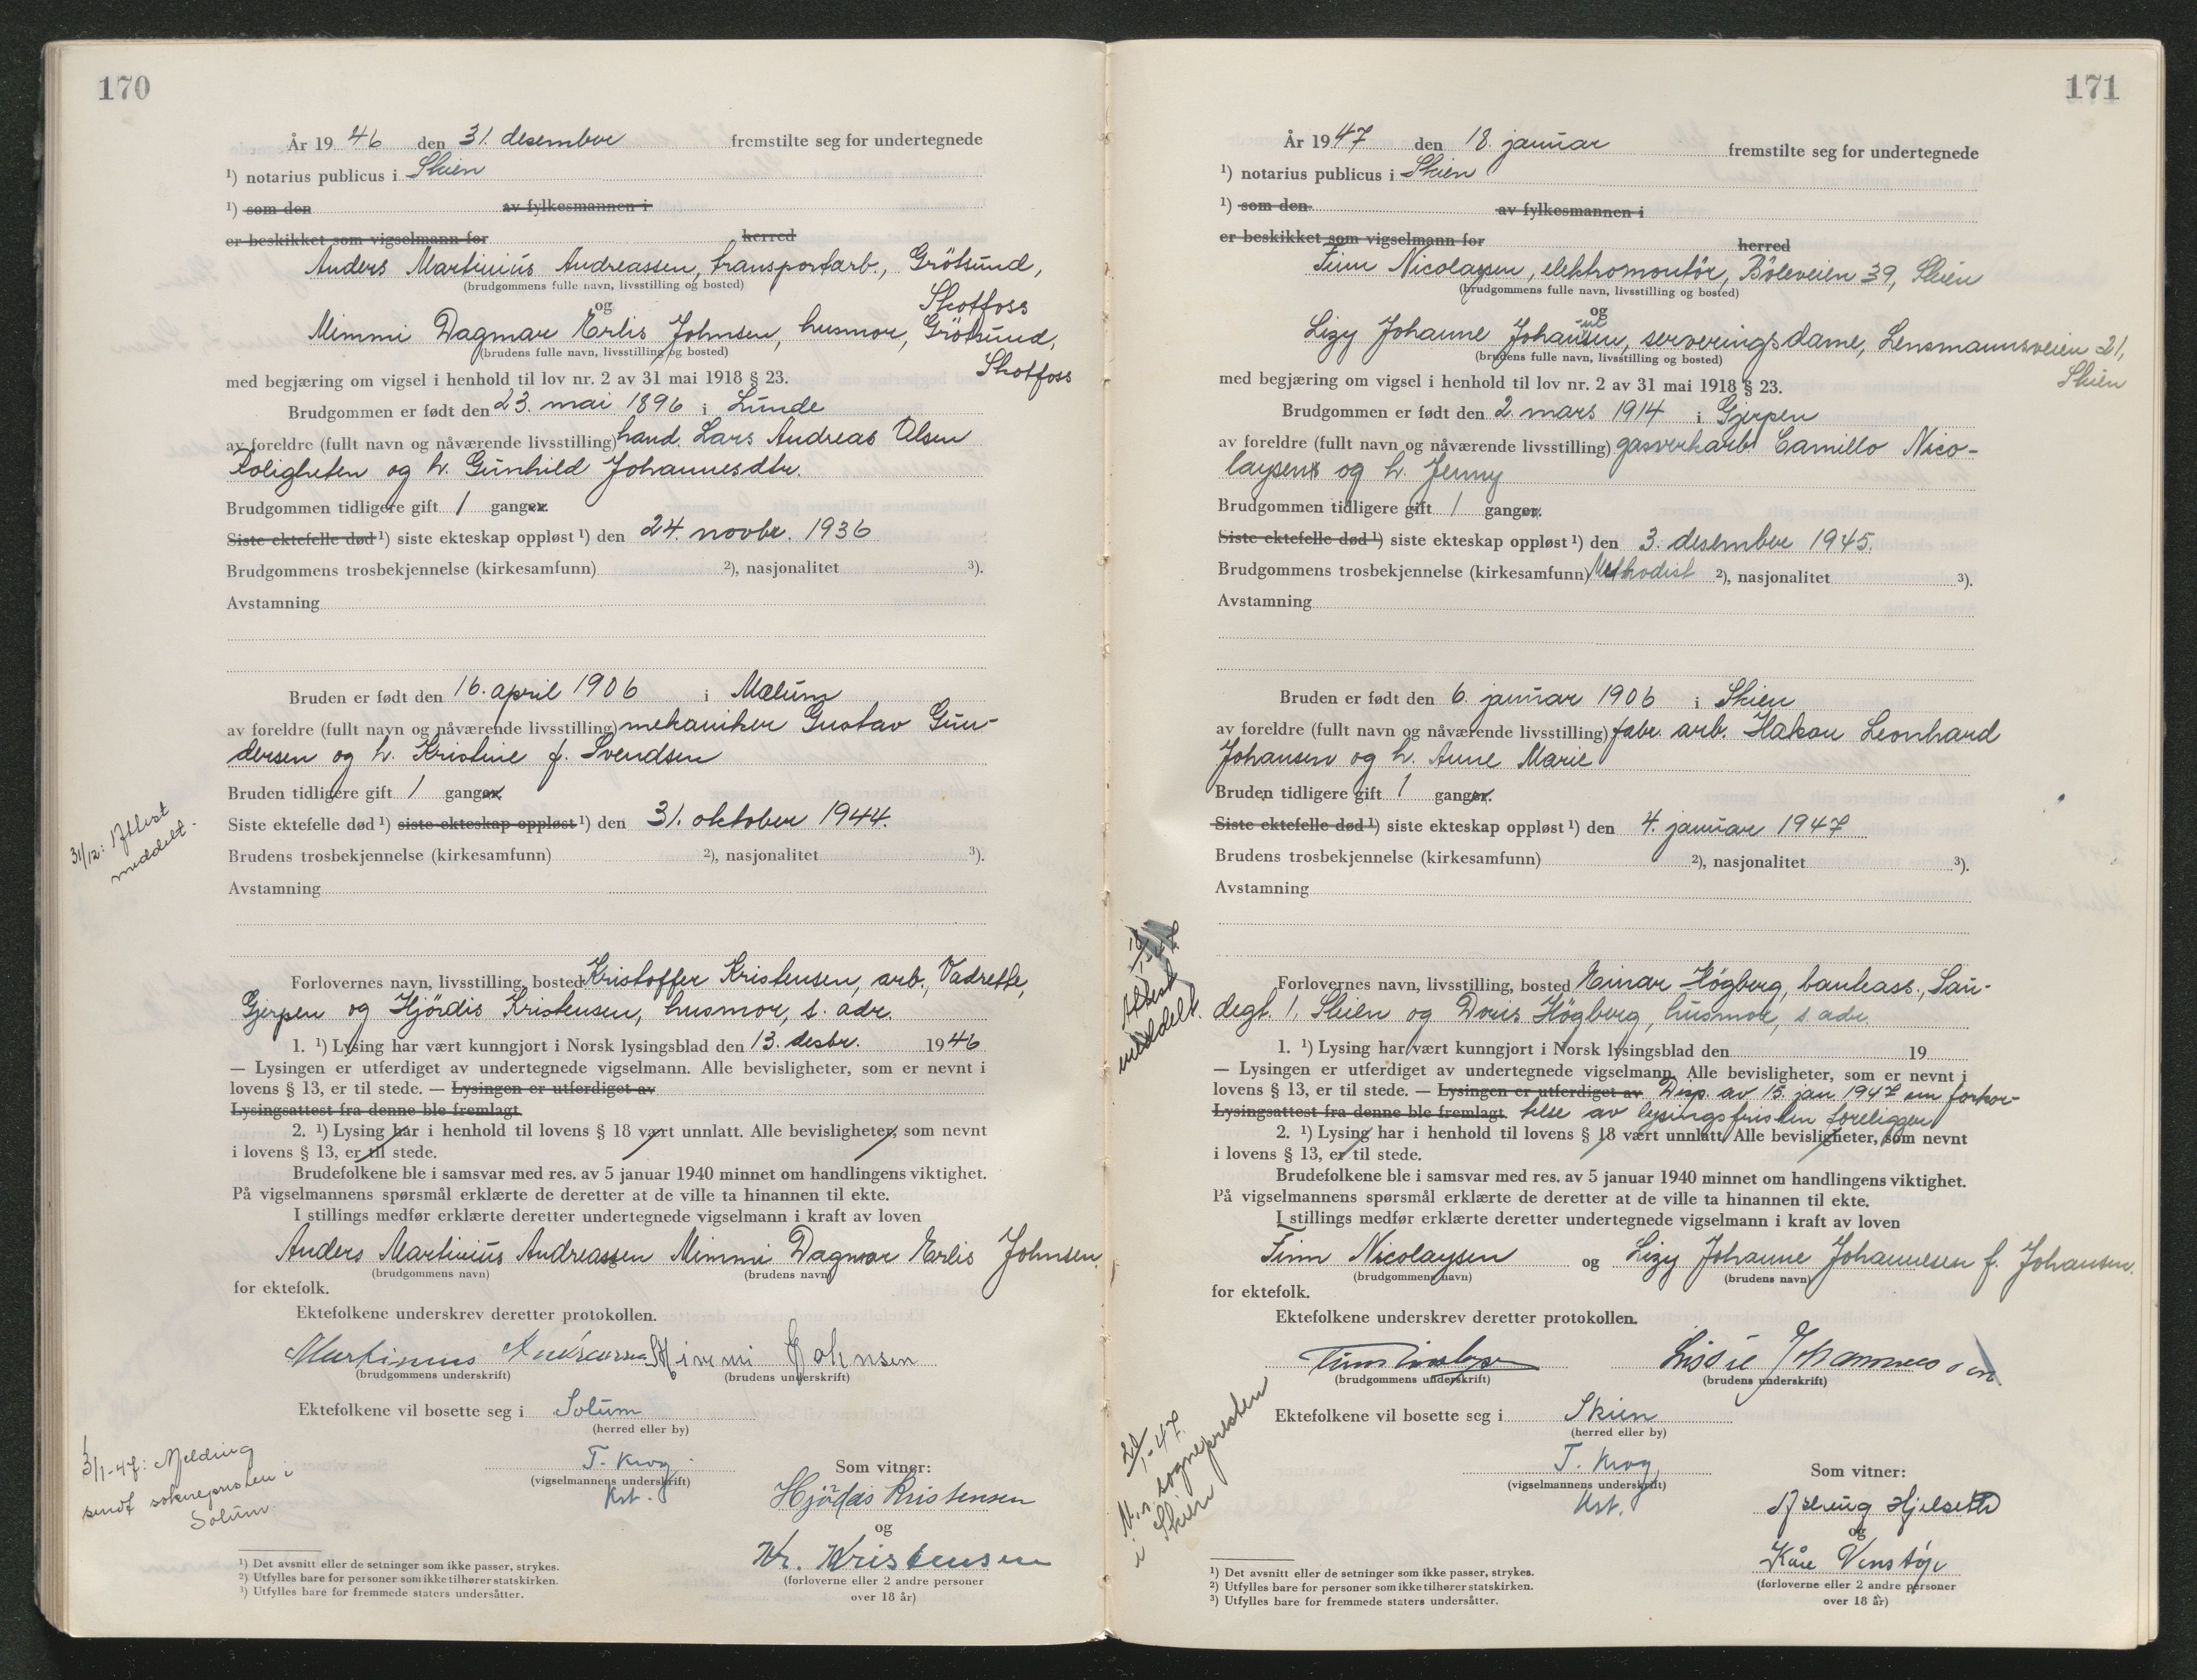 170
År 19 46 den 31. desember fremstilte seg for undertegnede
¹) notarius publicus i Skien
¹) som den av fylkesmannen i
er beskikket som vigselmann for herred
Anders Martinius Andreassen, transportarb., Grötsund,
(brudgommens fulle navn, livsstilling og bosted)
Skotfoss
og
Mimmi Dagmar Erlis Johnsen, husmor, Grötsund,
(brudens fulle navn, livsstilling og bosted)
Skotfoss
med begjæring om vigsel i henhold til lov nr. 2 av 31 mai 1918 § 23.
Brudgommen er født den 23. mai 1896 i Lunde
av foreldre (fullt navn og nåværende livsstilling) hand. Lars Andreas Olsen
Roligheten og h. Gunhild Johannesdtr.
Brudgommen tidligere gift 1 ganger.
Siste ektefelle død ¹) siste ekteskap oppløst ¹) den 24. novbr. 1936
Brudgommens trosbekjennelse (kirkesamfunn) ²), nasjonalitet ³).
Avstamning
Bruden er født den 16. april 1906 i Mælum
av foreldre (fullt navn og nåværende livsstilling) mekaniker Gustav Gun-
dersen og h. Kristine f. Svendsen
Bruden tidligere gift 1 ganger
Siste ektefelle død ¹) siste ekteskap oppløst ¹) den 31. oktober 1944.
31/12: Attest
meddelt.
Brudens trosbekjennelse (kirkesamfunn) ²), nasjonalitet ³).
Avstamning
Forlovernes navn, livsstilling, bosted Kristoffer Kristensen, arb., Vadrette,
Gjerpen og Hjördis Kristensen, husmor, s. adr.
1. ¹) Lysing har vært kunngjort i Norsk lysingsblad den 13. desbr. 1946
— Lysingen er utferdiget av undertegnede vigselmann. Alle bevisligheter, som er nevnt i
lovens § 13, er til stede. — Lysingen er utferdiget av
Lysingsattest fra denne ble fremlagt
2. ¹) Lysing har i henhold til lovens § 18 vært unnlatt. Alle bevisligheter, som nevnt
i lovens § 13, er til stede.
Brudefolkene ble i samsvar med res. av 5 januar 1940 minnet om handlingens viktighet.
På vigselmannens spørsmål erklærte de deretter at de ville ta hinannen til ekte.
I stillings medfør erklærte deretter undertegnede vigselmann i kraft av loven
Anders Martinius Andreassen Mimmi Dagmar Erlis Johnsen
(brudgommens navn) (brudens navn)
for ektefolk.
Ektefolkene underskrev deretter protokollen.
Martinus Andreassen Mimmi Johnsen
(brudgommens underskrift) (brudens underskrift)
Ektefolkene vil bosette seg i Solum
(herred eller by)
3/1-47: Melding
sendt soknepresten i
Solum.
T. Krog.
(vigselmannens underskrift)
Kst.
Som vitner:
Hjördis Kristensen
og
Kr. Kristensen
(forloverne eller 2 andre personer
over 18 år)
¹) Det avsnitt eller de setninger som ikke passer, strykes.
²) Utfylles bare for personer som ikke tilhører statskirken.
³) Utfylles bare for fremmede staters undersåtter.
171
År 1947 den 18. januar fremstilte seg for undertegnede
¹) notarius publicus i Skien
¹) som den av fylkesmannen i
er beskikket som vigselmann for herred
Finn Nicolaysen, elektromontör, Böleveien 39, Skien
(brudgommens fulle navn, livsstilling og bosted)
og
Lizy Johanne Johansen, serveringsdame, Lensmannsveien 21,
(brudens fulle navn, livsstilling og bosted)
Skien
med begjæring om vigsel i henhold til lov nr. 2 av 31 mai 1918 § 23.
Brudgommen er født den 2. mars 1914 i Gjerpen
av foreldre (fullt navn og nåværende livsstilling) gassverkarb. Camillo Nico-
laysen og h. Jenny
Brudgommen tidligere gift 1 ganger.
Siste ektefelle død ¹) siste ekteskap oppløst ¹) den 3. desember 1945.
Brudgommens trosbekjennelse (kirkesamfunn) Methodist ²), nasjonalitet ³).
Avstamning
Bruden er født den 6. januar 1906 i Skien
av foreldre (fullt navn og nåværende livsstilling) fabr. arb. Hakon Leonhard
Johansen og h. Anne Marie
Bruden tidligere gift 1 ganger.
Siste ektefelle død ¹) siste ekteskap oppløst ¹) den 4. januar 1947
Brudens trosbekjennelse (kirkesamfunn) ²), nasjonalitet ³).
Avstamning
Attest
meddelt.
Forlovernes navn, livsstilling, bosted Einar Högberg, bankass., Sau-
degt. 1, Skien og Doris Högberg, husmor, s. adr.
1. ¹) Lysing har vært kunngjort i Norsk lysingsblad den 19
— Lysingen er utferdiget av undertegnede vigselmann. Alle bevisligheter, som er nevnt i
lovens § 13, er til stede. — Lysingen er utferdiget av Disp. av 15. jan. 1947 om forkor-
Lysingsattest fra denne ble fremlagt. telse av lysingsfristen foreligger
2. ¹) Lysing har i henhold til lovens § 18 vært unnlatt. Alle bevisligheter, som nevnt
i lovens § 13, er til stede.
Brudefolkene ble i samsvar med res. av 5 januar 1940 minnet om handlingens viktighet.
På vigselmannens spørsmål erklærte de deretter at de ville ta hinannen til ekte.
I stillings medfør erklærte deretter undertegnede vigselmann i kraft av loven
Finn Nicolaysen og Lizy Johanne Johannesen f. Johansen.
(brudgommens navn) (brudens navn)
for ektefolk.
Ektefolkene underskrev deretter protokollen.
Finn Nicolaysen Lissie Johannessen
(brudgommens underskrift) (brudens underskrift)
Ektefolkene vil bosette seg i Skien
(herred eller by)
20/1-47.
M. s. sognepresten
i Skien
T. Krog
(vigselmannens underskrift)
Kst.
Som vitner:
Hjelseth
og
Kåre Venstöp
(forloverne eller 2 andre personer
over 18 år)
¹) Det avsnitt eller de setninger som ikke passer, strykes.
²) Utfylles bare for personer som ikke tilhører statskirken.
³) Utfylles bare for fremmede staters undersåtter.